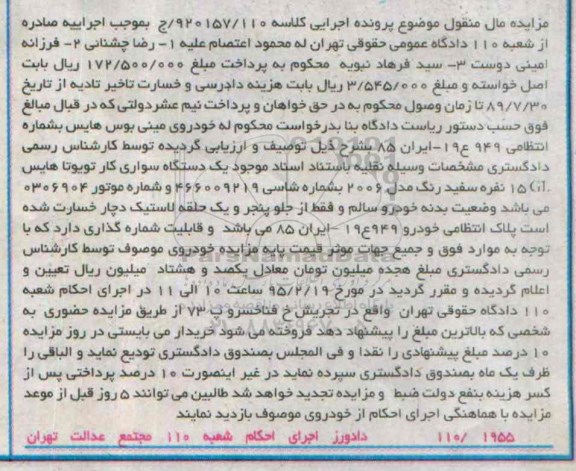 مزایده مال منقول موضوع پرونده اجرایی کلاسه ۹۲۰۱۵۷/۱۱۰/ج بموجب اجراییه صادره
از شعبه ۱۱۰ دادگاه عمومی حقوقی تهران له محمود اعتصام علیه ۱- رضا چشنانی ۲- فرزانه
امینی دوست ۳- سید فرهاد نبویه محکوم به پرداخت مبلغ ۱۷۲/۵۰۰/۰۰۰ ریال بابت
اصل خواسته و مبلغ ۳/۵۴۵/۰۰۰ ریال بابت هزینه دادرسی و خسارت تاخیر تادیه از تاریخ
۸۹/۷/۳۰ تا زمان وصول محکوم به در حق خواهان و پرداخت نیم عشردولتی که در قبال مبالغ
فوق حسب دستور ریاست دادگاه بنا بدرخواست محکوم له خودروی مینی بوس هایس بشماره
انتظامی ۹۴۹ ع۱۹-ایران ۸۵ بشرح ذیل توصیف و ارزیابی گردیده توسط کارشناس رسمی
دادگستری مشخصات وسیله نقلیه باستناد اسناد موجود یک دستگاه سواری کار تویوتا هایس
۱۵ نفره سفید رنگ مدل ۲۰۰۶ بشماره شاسی ۴۶۶۰۰۹۲۱۹ و شماره موتور ۰۳۰۶۹۰۴
می باشد وضعیت بدنه خودرو سالم و فقط از جلو پنجر و یک حلقه لاستیک دچار خسارت شده
است پلاک انتظامی خودرو ۹۴۹ع۱۹ -ایران ۸۵ می باشد و قابلیت شماره گذاری دارد که با
توجه به موارد فوق و جمیع جهات موثر قیمت پایه مزایده خودروی موصوف توسط کارشناس
رسمی دادگستری مبلغ هجده میلیون تومان معادل یکصد و هشتاد میلیون ریال تعیین و
اعلام گردیده و مقرر گردید در مورخ ۹۵/۲/۱۹ ساعت ۱۰ الی ۱۱ در اجرای احکام شعبه
۱۱۰ دادگاه حقوقی تهران واقع در تجریش خ فناخسرو پ ۷۳ از طریق مزایده حضوری به
شخصی که بالاترین مبلغ را پیشنهاد دهد فروخته می شود خریدار می بایستی در روز مزایده
۱۰ درصد مبلغ پیشنهادی را نقدا و فی المجلس بصندوق دادگستری تودیع نماید و الباقی را
ظرف یک ماه بصندوق دادگستری سپرده نماید در غیر اینصورت ۱۰ درصد پرداختی پس از
کسر هزینه بنفع دولت ضبط و مزایده تجدید خواهد شد طالبین می توانند ۵ روز قبل از موعد
مزایده با هماهنگی اجرای احکام از خودروی موصوف بازدید نمایند
۱۱۰/ ۱۹۵۵ دادورز اجرای احکام شعبه ۱۱۰ مجتمع عدالت تهران